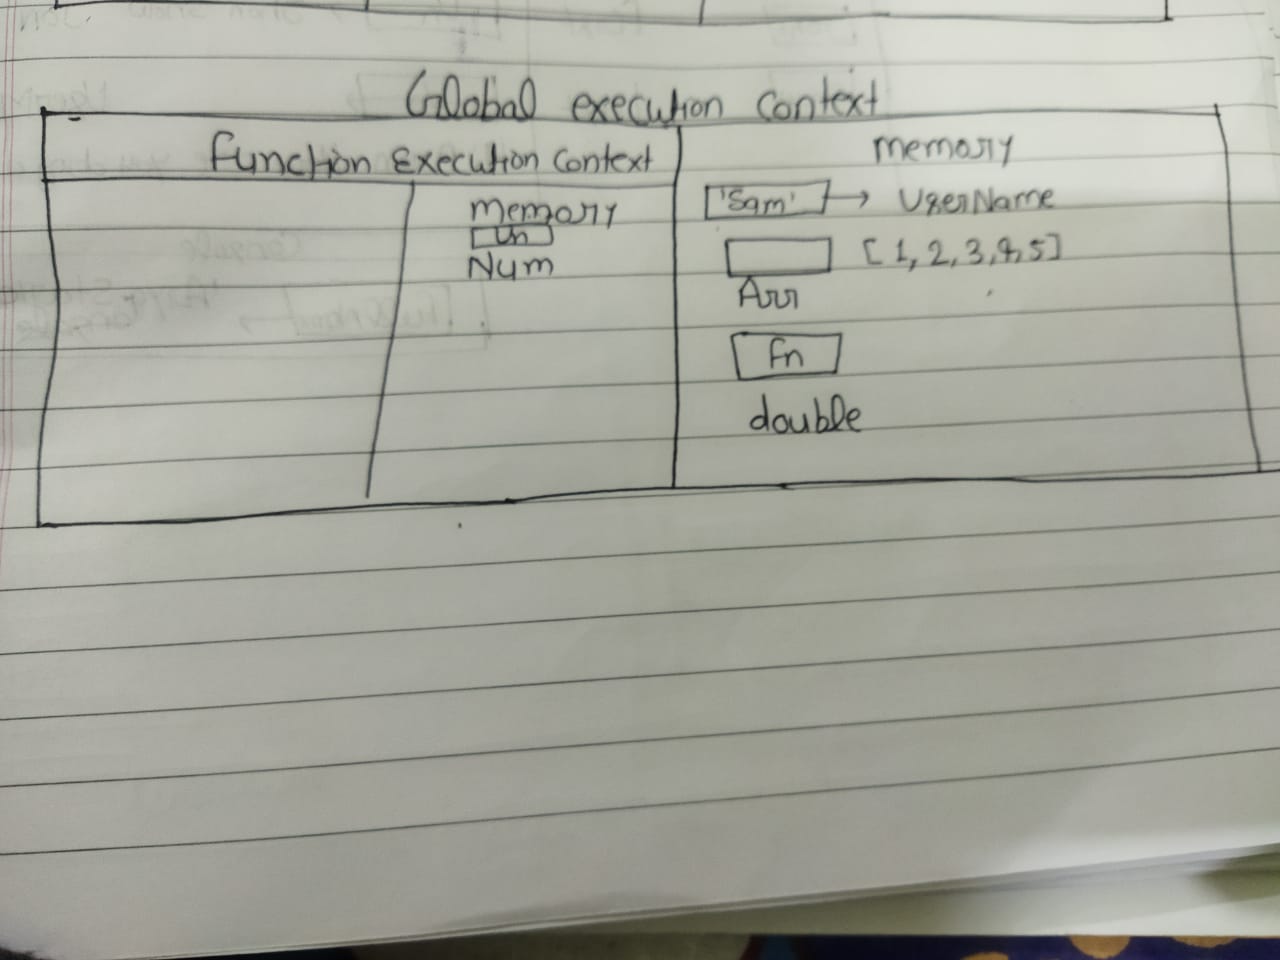 Global execution context
Function Execution Context
Memory
Un
Num
memory
'Sam' → UserName
[1, 2, 3, 4, 5]
Arr
Fn
double